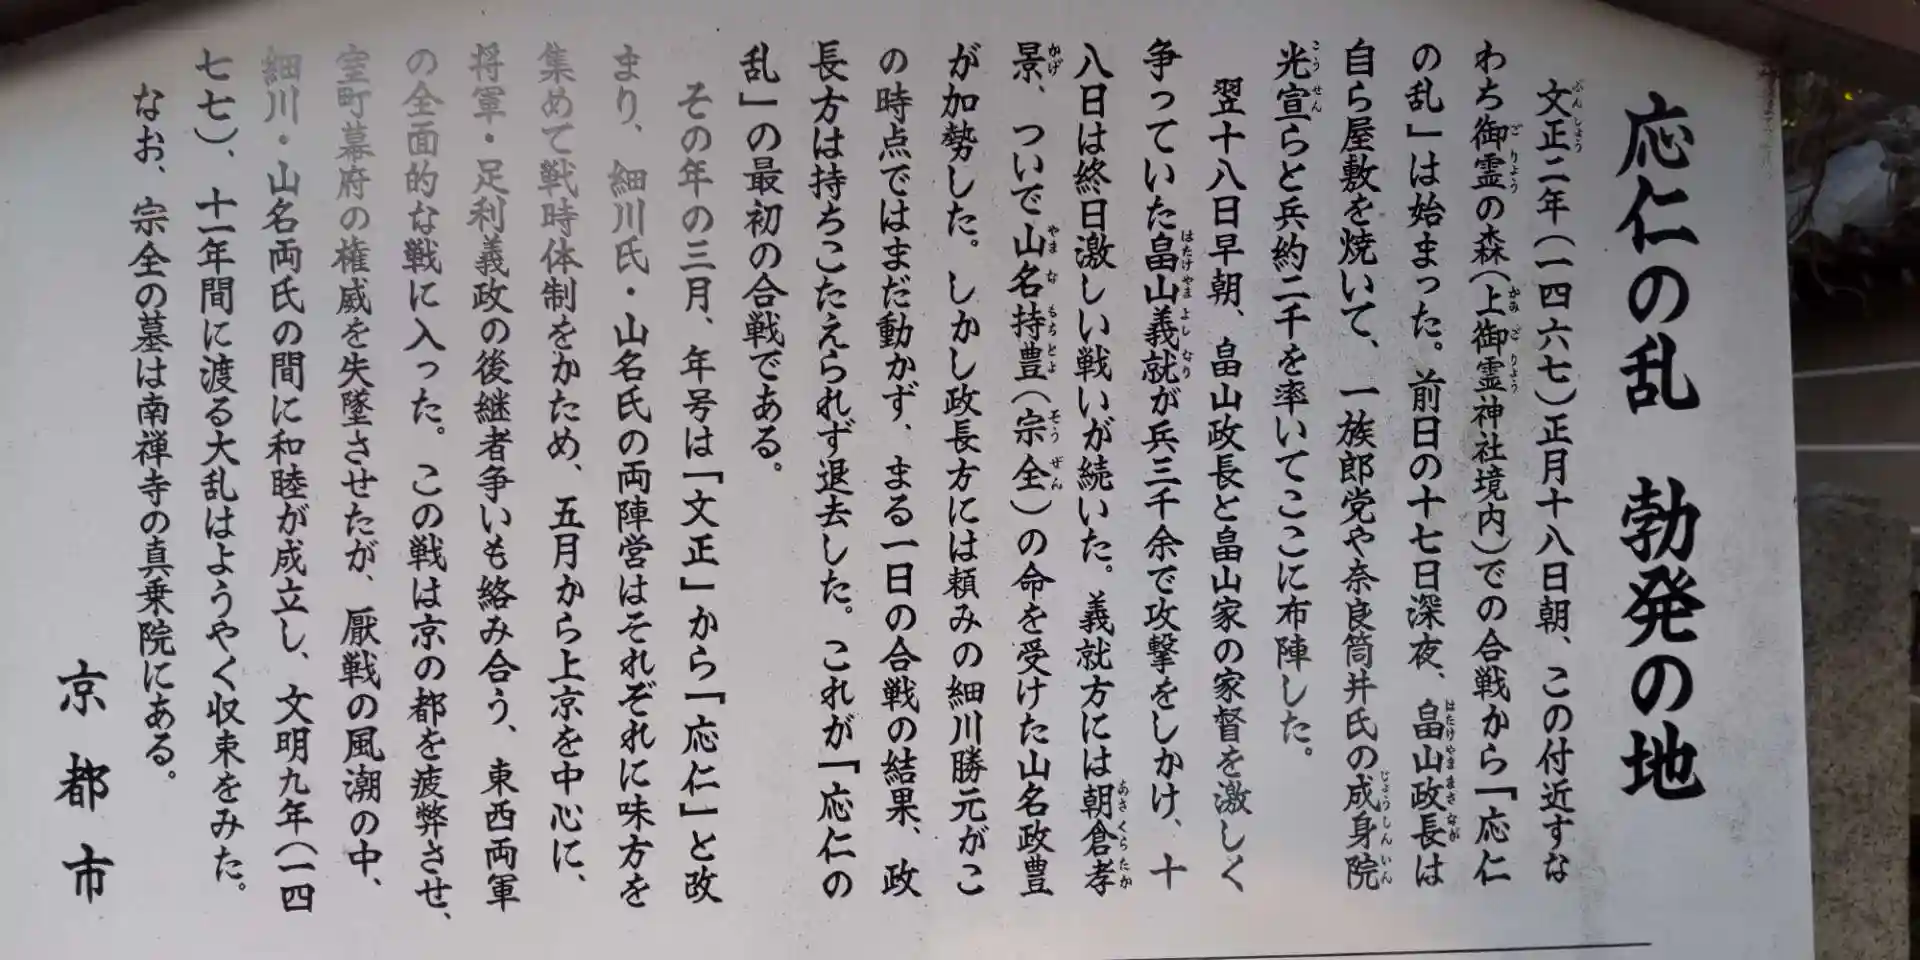 応仁の乱 勃発の地
文正二年(一四六七)正月十八日朝、この付近すな
わち御霊の森(上御霊神社境内)での合戦から「応仁
の乱」は始まった。前日の十七日深夜、畠山政長は
自ら屋敷を焼いて、一族郎党や奈良筒井氏の成身院
光宣らと兵約二千を率いてここに布陣した。
翌十八日早朝、畠山政長と畠山家の家督を激しく
争っていた畠山義就が兵三千余で攻撃をしかけ、十
八日は終日激しい戦いが続いた。義就方には朝倉孝
景、ついで山名持豊(宗全)の命を受けた山名政豊
が加勢した。しかし政長方には頼みの細川勝元がこ
の時点ではまだ動かず、まる一日の合戦の結果、政
長方は持ちこたえられず退去した。これが「応仁の
乱」の最初の合戦である。
その年の三月、年号は「文正」から「応仁」と改
まり、細川氏・山名氏の両陣営はそれぞれに味方を
集めて戦時体制をかため、五月から上京を中心に、
将軍・足利義政の後継者争いも絡み合う、東西両軍
の全面的な戦に入った。この戦は京の都を疲弊させ、
室町幕府の権威を失墜させたが、厭戦の風潮の中、
細川・山名両氏の間に和睦が成立し、文明九年(一四
七七)、十一年間に渡る大乱はようやく収束をみた。
なお、宗全の墓は南禅寺の真乗院にある。
京都市